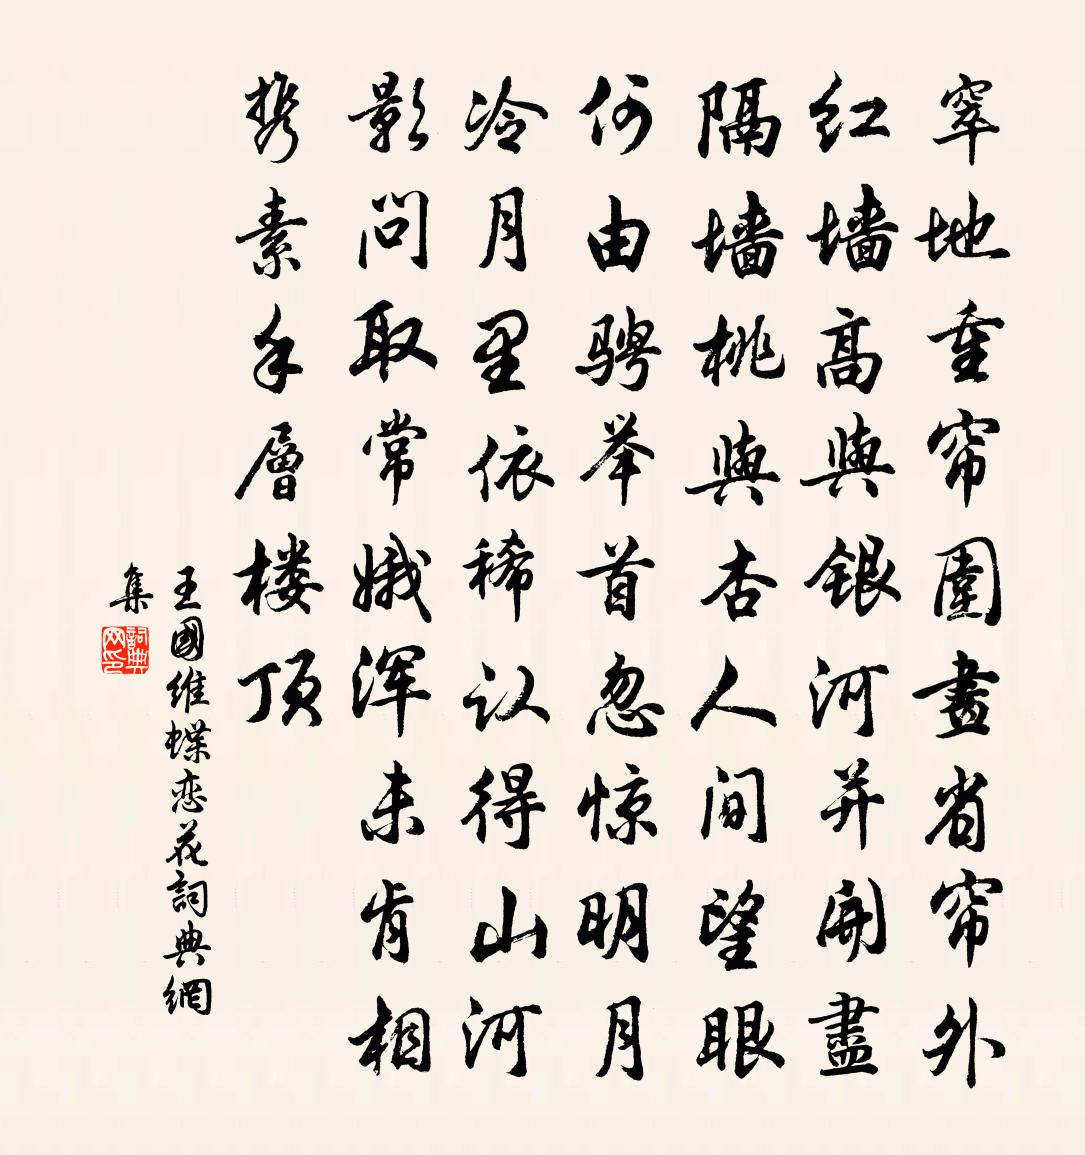 窣地重帘圍畫省帘外
红墙高與銀河并開盡
隔墙桃與杏人间望眼
何由骋举首忽惊明月
冷月里依稀认得山河
影问取常娥浑未肯相
携素手層楼顶
王國維蝶恋花詞典網
集
詞典网印